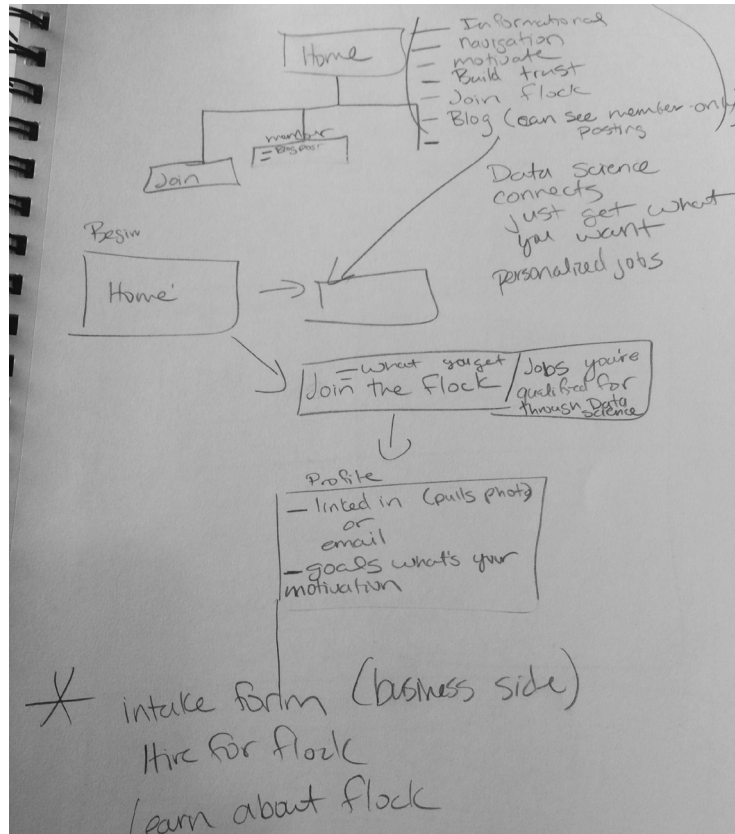 Home
Informational
navigation
motivate
Build trust
Join flock
Blog (can see member-only
posting
member
Blog post
Join
Data science
connects
just get what
you want
personalized jobs
Begin
Home
what you get
Join the flock
Jobs you're
qualified for
through Data
science
Profile
linked in (pulls photo)
or
email
goals what's your
motivation
intake form (business side)
Hire for flock
learn about flock